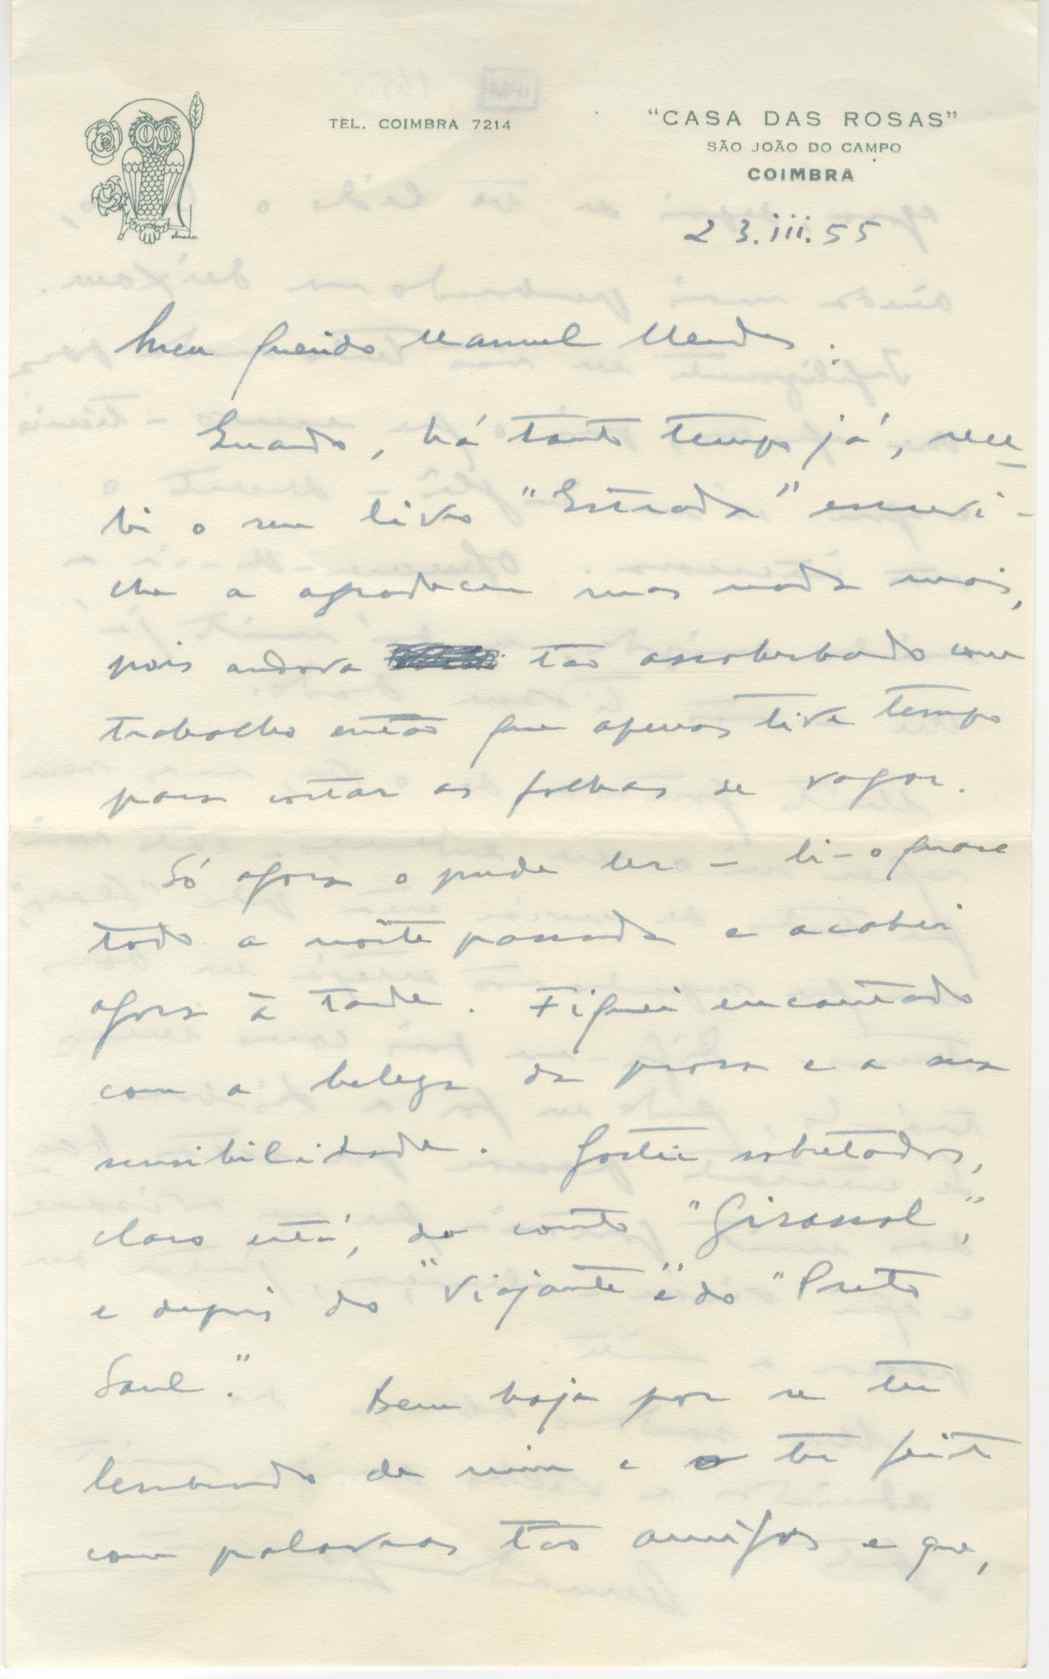 TEL. COIMBRA 7214
"CASA DAS ROSAS"
SÃO JOÃO DO CAMPO
COIMBRA
23.iii.55
Meu querido Manuel Mendes:
Quando, há tanto tempo já, rece-
bi o seu livro "Estrada" escrevi-
lhe a agradecer mas nada mais,
pois andava tão assoberbado com
trabalho então que apenas tive tempo
para cortar as folhas de vagar.
Só agora o pude ler – li-o quase
todo a noite passada e acabei
agora à tarde. Fiquei encantado
com a beleza da prosa e a sua
sensibilidade. Gostei sobretudo,
claro está, do conto "Girassol",
e depois do "Viajante" e do "Preto
Saul". Bem haja por se ter
lembrado de mim e o ter feito
com palavras tão amigas e que,